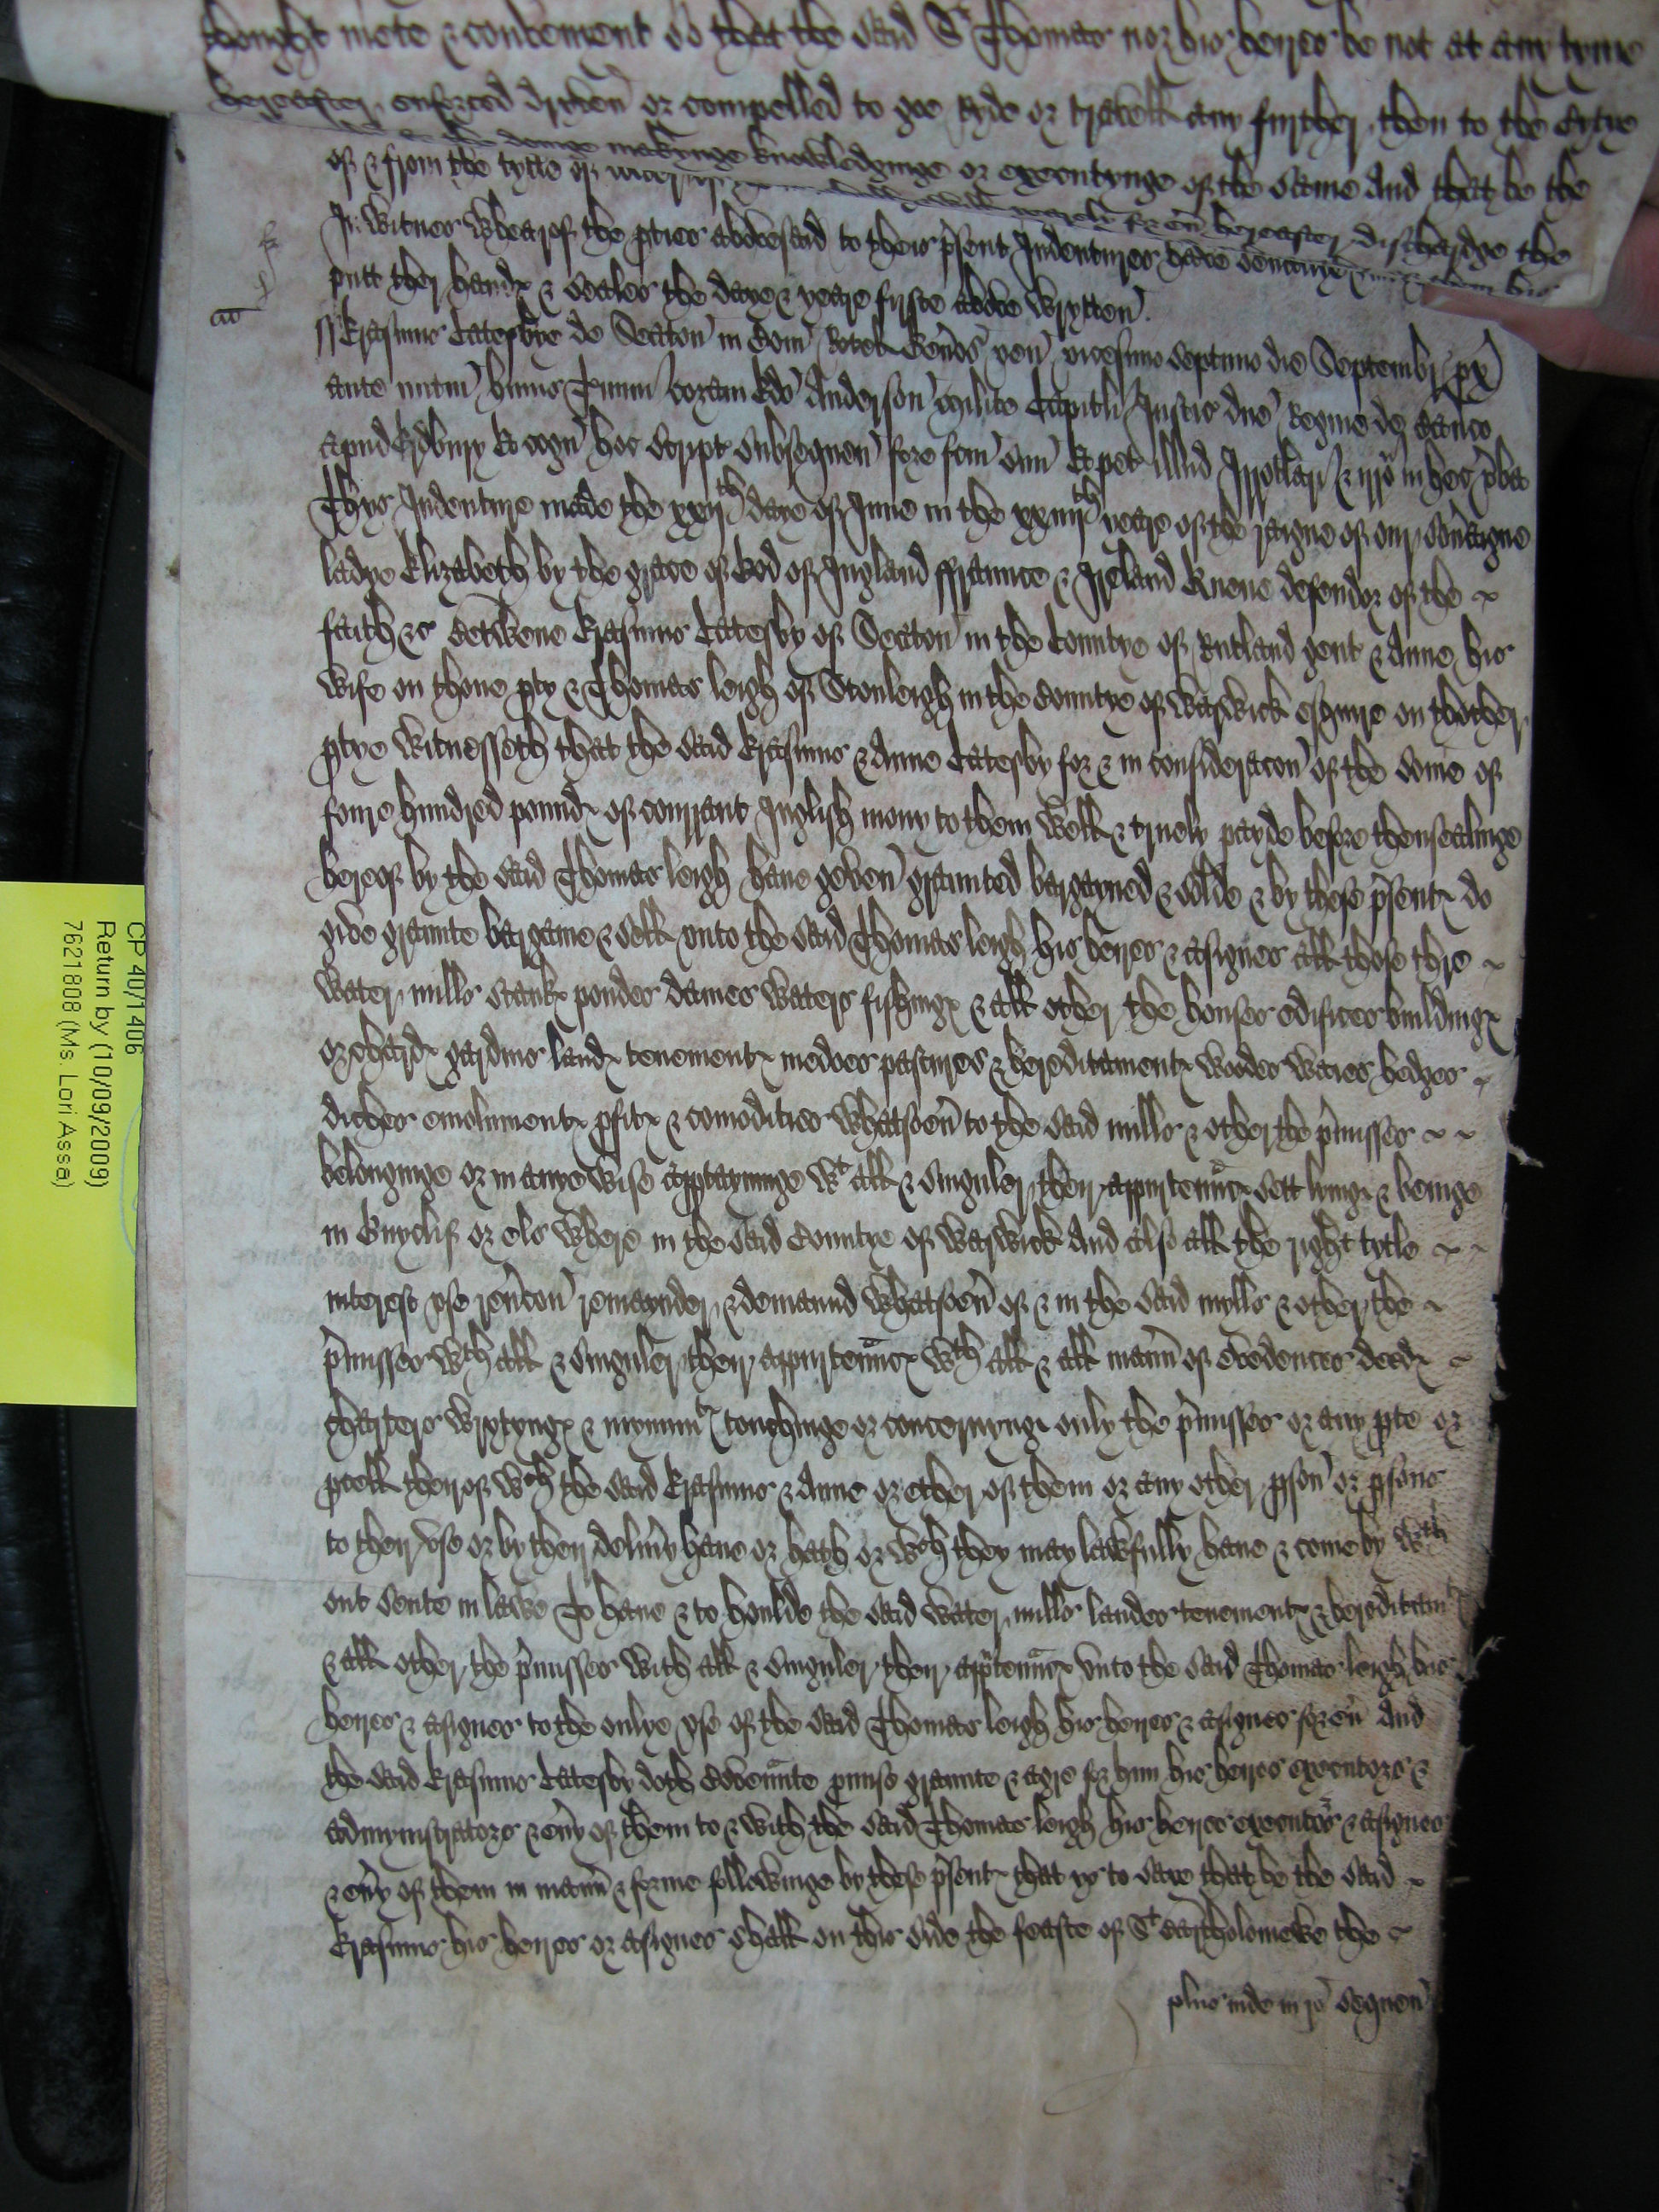 thought mete & convement so that the said Sr Thomas nor his heires be not at any tyme
hereafter enforced dryven or compelled to goe ryde or travell any further then to the Cytye
doinge makynge knowledginge or executynge of the same And that he the
of & from the tytle of
hereafter discharge the
In witnes whearof the pties abovesaid to theis pīsent Indentures have
putt their handℯ & seales the daye & yeare firste above wrytten
Erasmus Catesbye de Seaton in Com Rotel Gen̄os ven vicesimo septimo die Septembr px
ante nūtm huius Tmini coram Edo Anderson milite Capitli Justic dne Regine de Banco
apud Eydbury & cogn hoc script subsequen fore fcm suu & pet illud Irrotlari & irro in hec vba
Thys Indenture made the xxijth daye of June in the xxiiijth yeare of the raigne of our sovaigne
ladye Elizabeth by the grace of God of Ingland ffraunce & Ireland Quene defendor of the
faith &c Betwene Erasmus Catesby of Seaton in the Countye of Rutland gent & Anne his
wife on thone pty & Thomas leigh of Stonleigh in the Countye of Warwick esquire on thother
ptye Witnesseth that the said Erasmus & Anne Catesby for & in consideracon of the some of
foure hundred poundℯ of currant Inglish mony to them well & truely payde before thensealinge
hereof by the said Thomas leigh have geven graunted bargayned & solde & by these pīsentℯ do
give graunte bargaine & sell unto the said Thomas leigh his heires & asignes all those thre
water mills stankℯ pondes dames waters fishingℯ & all other the houses edifices buildingℯ
orchardℯ gardins landℯ tenementℯ medoes pastures & hereditamentℯ woodes waies hedges
diches emolumentℯ pfitℯ & comodities whatsoev to the said mills & other the pīmisses
belonginge or in anye wise apptayninge wt all & singuler their appurtenncℯ sett lyinge & beinge
in Guyclif or els where in the said Countye of Warwick And also all the right tytle
interest use revcon remaynder & demaund whatsoev of & in the said mylls & other the
pīmisses wth all & singuler their appurtenncℯ wth all & all mann of evedences deedℯ
charters wrytyngℯ & mynimtℯ touchinge or concernynge only the pīmisses or any pte or
pcell therof wch the said Erasmus & Anne or ether of them or any other pson or psons
to their use or by their delivy have or hath or wch they may lawfully have & come by wth
out sente in lawe To have & to houlde the said water mills landes tenementℯ & hereditam
& all other the pīmisses with all & singuler their apptenncℯ unto the said Thomas leigh his
heires & asignes to the onlye use of the said Thomas leigh his heires & asignes forev And
the said Erasmus Catesby doth covennte pmise graunte & agre for him his heires executors &
admynistrators & evy of them to & with the said Thomas leigh his heires executors & asignes
& evy of them in mann & forme followinge by these pīsentℯ that ys to saie that he the said
Erasmus his heires or asignes shall on this side the feaste of St Bartholomewe the
plus inde in ro sequen
CP 40/1406
Return by (10/09/2009)
7621808 (Ms. Lori Assa)